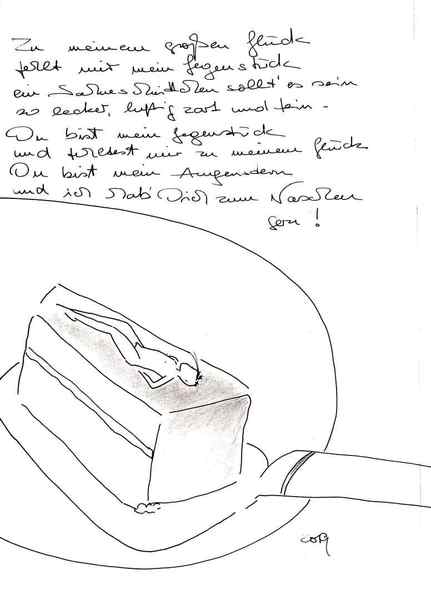 Zu meinem großen Glück
fehlt mir mein Gegenstück
ein Sahneschnittchen sollt' es sein
so lecker, luftig zart und fein -
Du bist mein Gegenstück
und fehltest mir zu meinem Glück
Du bist mein Augenstern
und ich hab' Dich zum Naschen
gern!